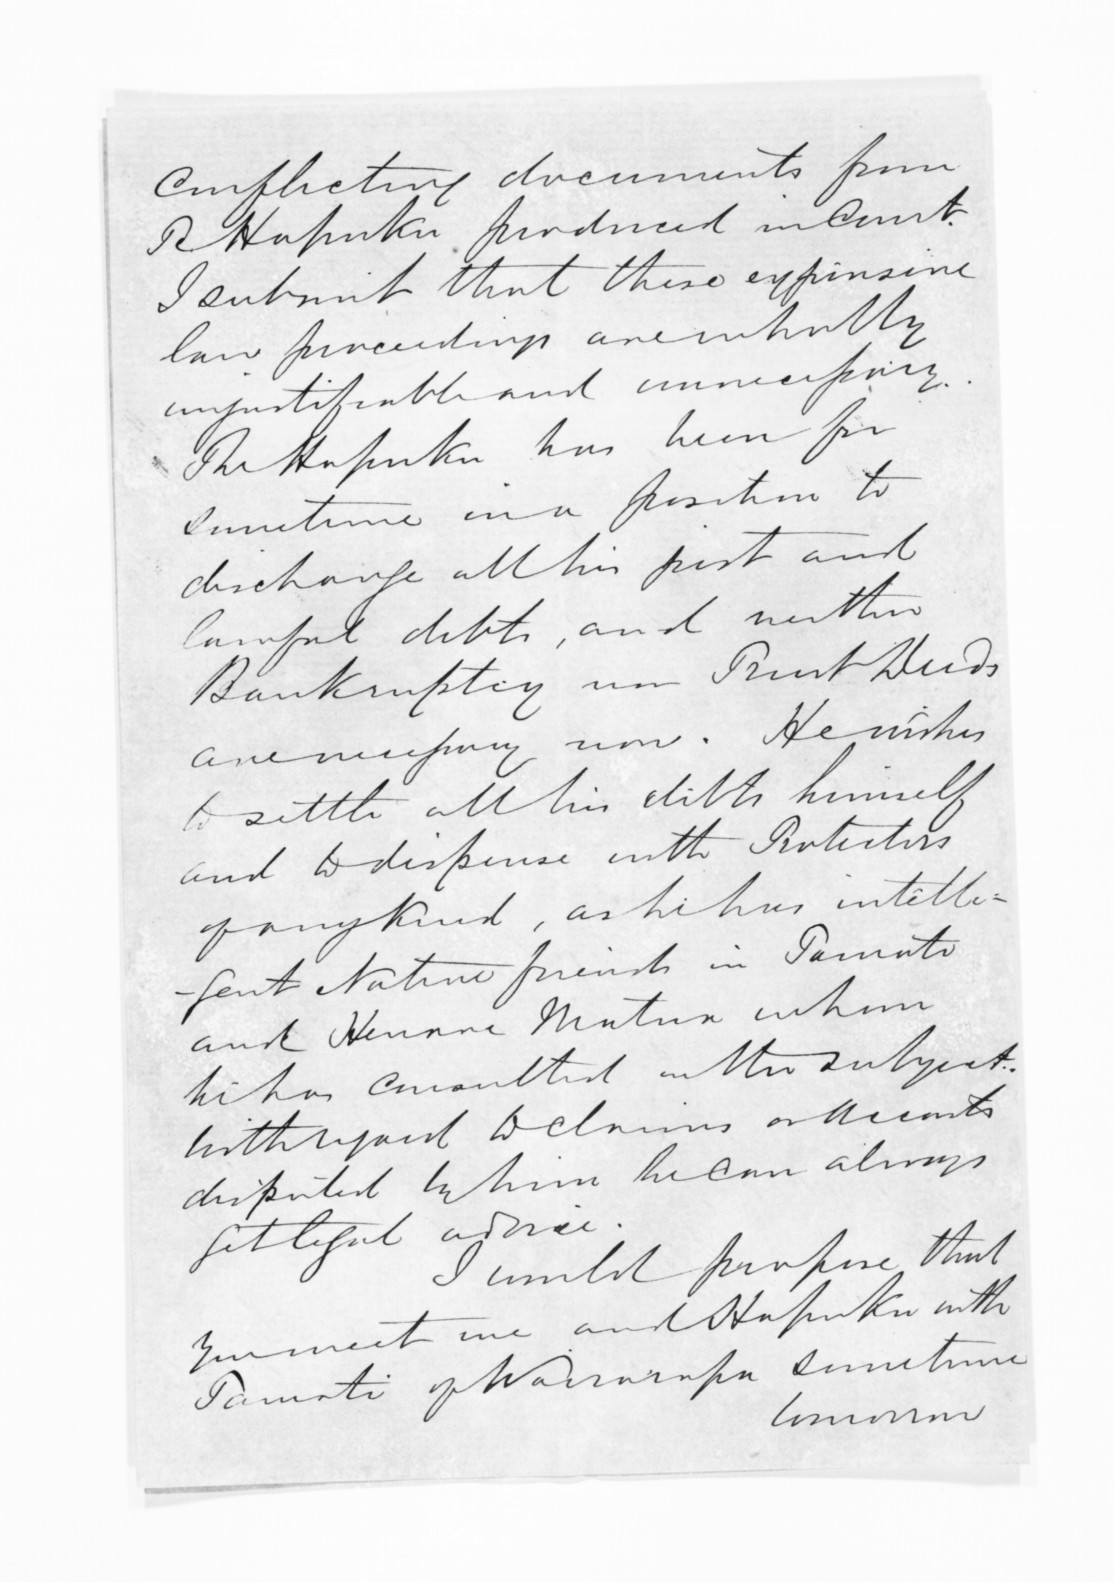 Conflicting documents from
R Hapuku produced in Court.
I submit that these expensive
law proceedings are wholly
unjustifiable and unnecessary.
The Hapuku has been for
sometime in a position to
discharge all his just and
lawful debts, and neither
Bankruptcy nor Trust Deeds
are necessary now. He wishes
to settle all his debts himself
and to dispense with Protectors
of any kind, as he has intelli=
-gent Native friends in Tamati
and Henare Matua whom
he has consulted on the subject.
With regard to claims or accounts
disputed by him he can always
get legal advice.
I would propose that
you meet me and Hapuku with
Tamati of Wairarapa sometime
tomorrow